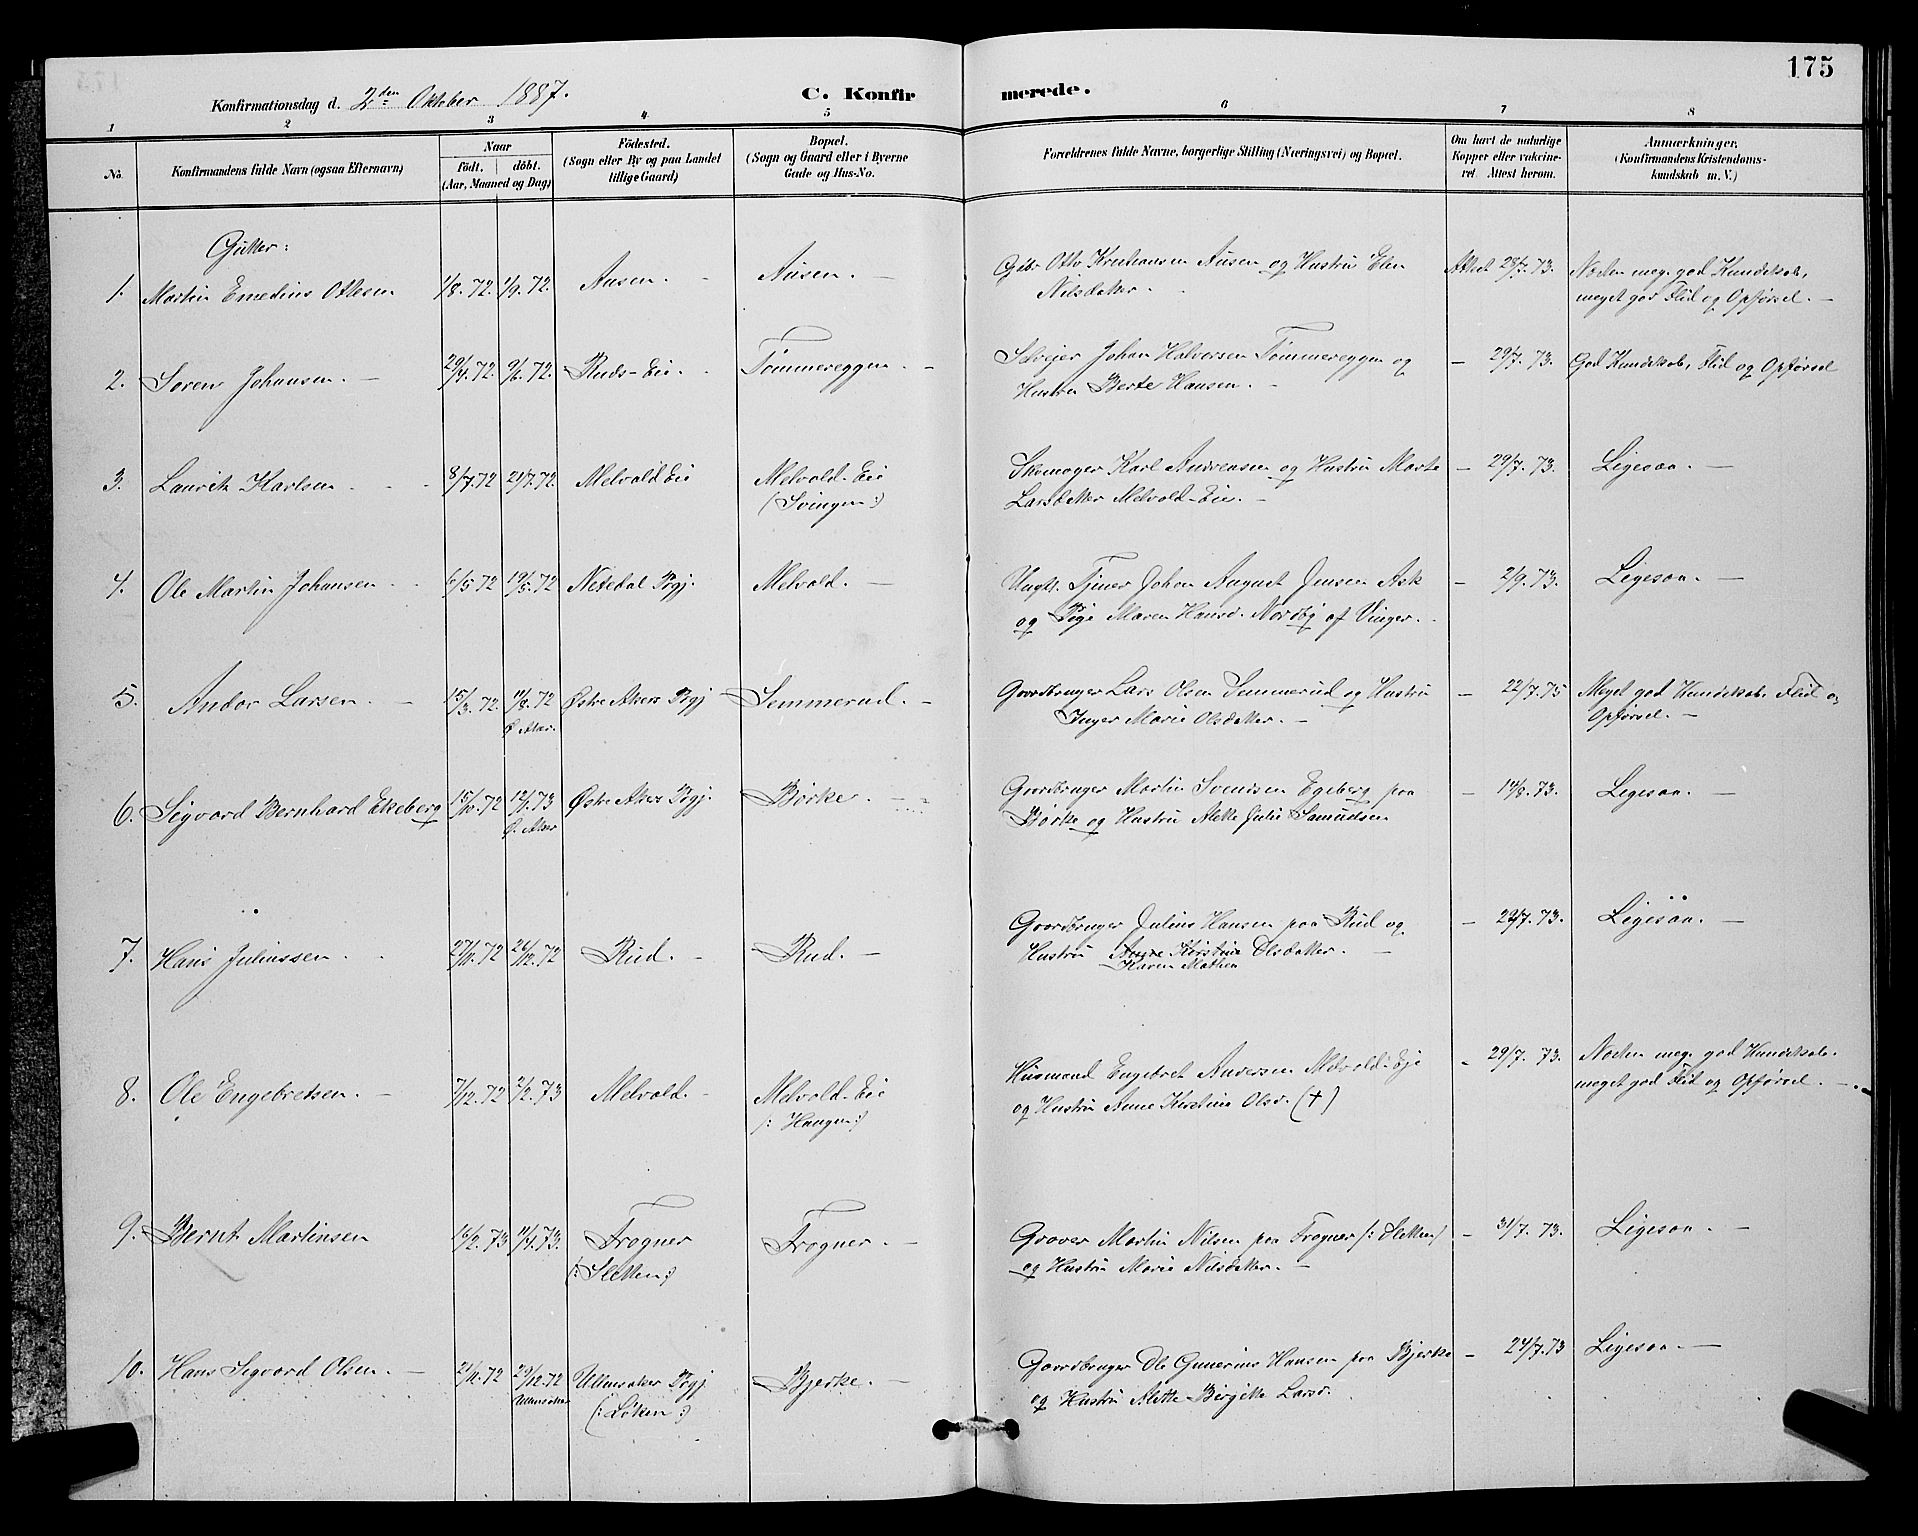 175
Konfirmationsdag d. 2den Oktober 1887.
C. Konfirmerede.
1 2 3 4 5 6 7 8
No.
Konfirmandens fulde Navn (ogsaa Efternavn)
Naar
födt. döbt.
(Aar, Maaned og Dag)
Födested.
(Sogn eller By og paa Landet
tillige Gaard)
Bopæl.
(Sogn og Gaard eller i Byerne
Gade og Hus-No.
Forældrenes fulde Navne, borgerlige Stilling (Næringsvei) og Bopæl.
Om havt de naturlige
Kopper eller vakcine-
ret. Attest herom.
Anmærkninger.
(Konfirmandens Kristendoms-
kundskab m. V.)
Gutter:
1. Martin Emedius Ottesen 1/8.72. 1/9.72. Ausen. - Ausen. - Gbr. Otto Kristiansen Ausen og Hustru Elen
Nilsdatter. - Attest 28/7.73. Næsten meg. god Kundskab,
meget god Flid og Opførsel. -
2. Søren Johansen. - 29/4.72. 9/6.72. Ruds-Eie. - Tømmereggen. - Selveier Johan Halvorsen Tømmereggen og
Hustru Berte Hansen. - - 29/7.73. God Kundskab, Flid og Opførsel
3. Lauritz Karlsen - - 8/7.72 21/7.72. Melvold Eie Melvold-Eie
(Svingen:) Skomager Karl Andreassen og Hustru Marte
Larsdatter Melvold-Eie. - - 29/7.73. Ligesaa. -
4. Ole Martin Johansen - - 6/5.72 19/5.72 Nitedal Pgj. Melvold. - Ungk. Tjener Johan August Jensen Ask
og Pige Maren Hansd. Nordby af Vinger. - - 2/9.73. Ligesaa. -
5. Andor Larsen. - 15/3.72. 11/8.72
Ø. Aker. Østre Akers Pgj Semmerud. - Gaardbruger Lars Olsen Semmerud og Hustru
Inger Marie Olsdatter. - - 22/7.75 Meget god Kundskab, Flid og
Opførsel. -
6. Sigvard Bernhard Ekeberg 15/10.72 12/1.73
Ø. Aker Østre Akers Pgj. Børke. - Gaardbruger Martin Svendsen Egeberg paa
Børke og Hustru Alette Julie Samuelsen - 14/8.73. Ligesaa. -
7. Hans Juliussen. - 27/11.72 26/12.72 Rud. - Rud. - Gaardbruger Julius Hansen paa Rud og
Hustru Anne Kirstine Olsdatter. -
Karen Mathea - 29/7.73. Ligesaa. -
8. Ole Engebretsen. - 7/12.72 2/2.73 Melvold. - Melvold-Eie
(: Haugen:) Husmand Engebret Andersen Melvold-Eje
og Hustru Anne Kirstine Olsd. (†) - 29/7.73. Næsten meg. god Kundskab.
meget god Flid og Opførsel. -
9. Bernt Martinsen 16/2.73 11/4.73. Frogner
(: Sletten:) Frogner. - Graver Martin Nilsen paa Frogner (: Sletten)
og Hustru Marie Nilsdatter. - - 31/7.73. Ligesaa. -
10. Hans Sigvard Olsen. - 21/11.72 29/12.72
Ullensaker Ullensaker Pgj.
(: Løken:) Bjerke. - Gaardbruger Ole Gunerius Hansen paa Bjerke
og Hustru Alette Birgitte Larsd. - 24/7.73 Ligesaa. -